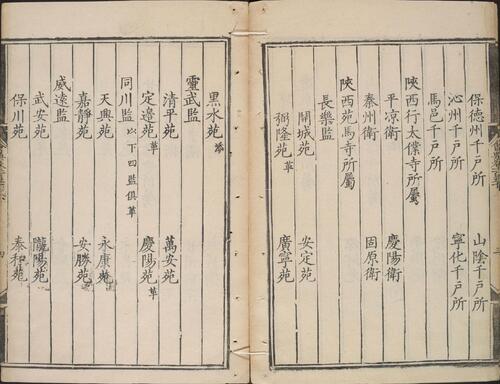 保德州千戶所 山陰千戶所
沁州千戶所 寧化千戶所
馬邑千戶所
陝西行太僕寺所屬
平凉衛 慶陽衛
秦州衛 固原衛
陝西苑馬寺所屬
長樂監
開城苑 安定苑
弼隆苑革 廣寧苑
黑水苑革
靈武監
清平苑 萬安苑
定邊苑革 慶陽苑革
同川監以下四監俱革
天興苑 永康苑
嘉靜苑 安勝苑
威遠監
武安苑 隴陽苑
保川苑 泰和苑
四